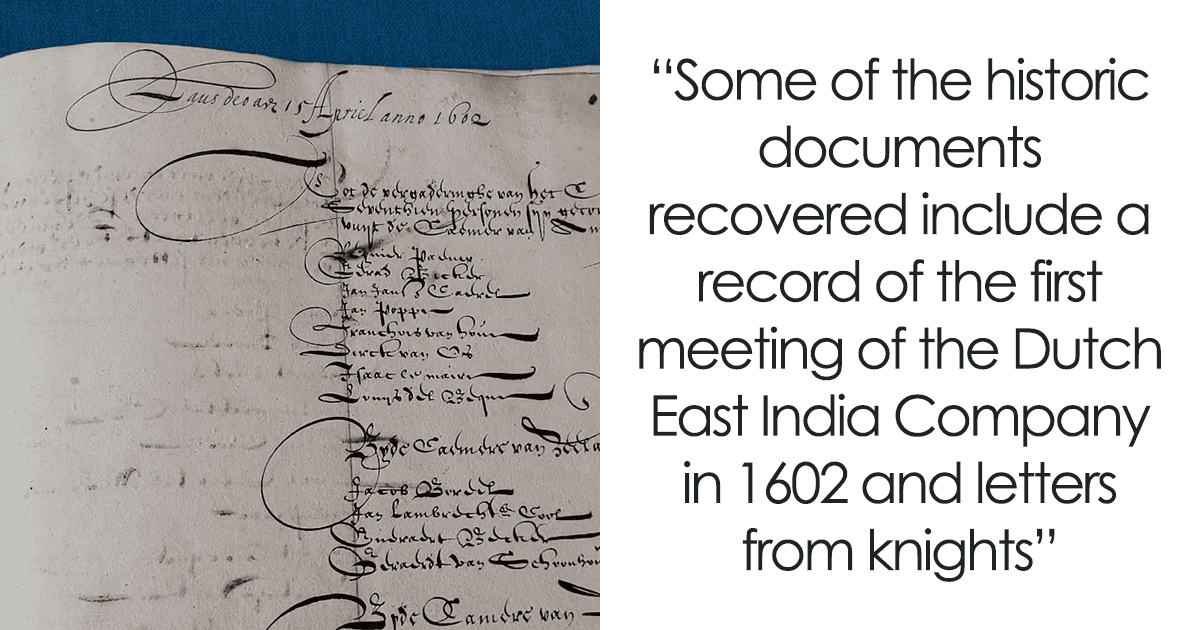 Laus deo adj 15 April anno 1602
Tot de vergaderinghe van het
Seventhien personen sijn
vuijt de Caemer van
Gerad Bicker
Jan Jansz Caerel
Jan Poppe
Franchois van houe
Dirck van Os
Isaac le maire
Louijs del Beque
Bijde Caemere van
Jacob Boreel
Jan Lambrechts Cool
Becker
Geraerdt van
Bijde Camere van
“Some of the historic
documents
recovered include a
record of the first
meeting of the Dutch
East India Company
in 1602 and letters
from knights”